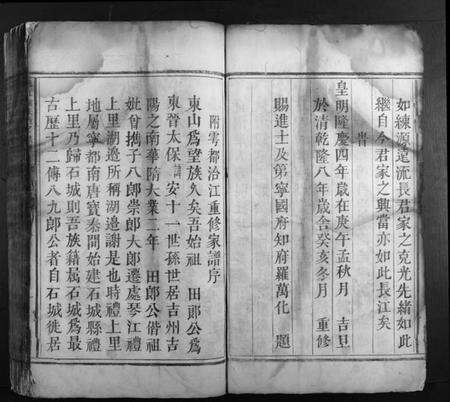 如練源遠流長君家之克光先緒如此
繼自今君家之興當亦如此長江矣
皇明隆慶四年歲在庚午孟秋月 吉旦
於清乾隆八年歲舍癸亥冬月 重修
賜進士及第寧國府知府羅萬化 題
附雩都洽江重修家譜序
東山為望族久矣吾始祖 田郎公為
東晉太保諱安十一世孫世居吉州吉
陽之南華隋大業二年 田郎公偕祖
妣曾攜子八郎崇郎大郎遷處琴江禮
上里湖邉所稱湖邉謝是也時禮上里
地屬寧都南唐寶泰間始建石城縣禮
上里乃歸石城則吾族籍属石城為最
古歷十二傳八九郎公者自石城徙居